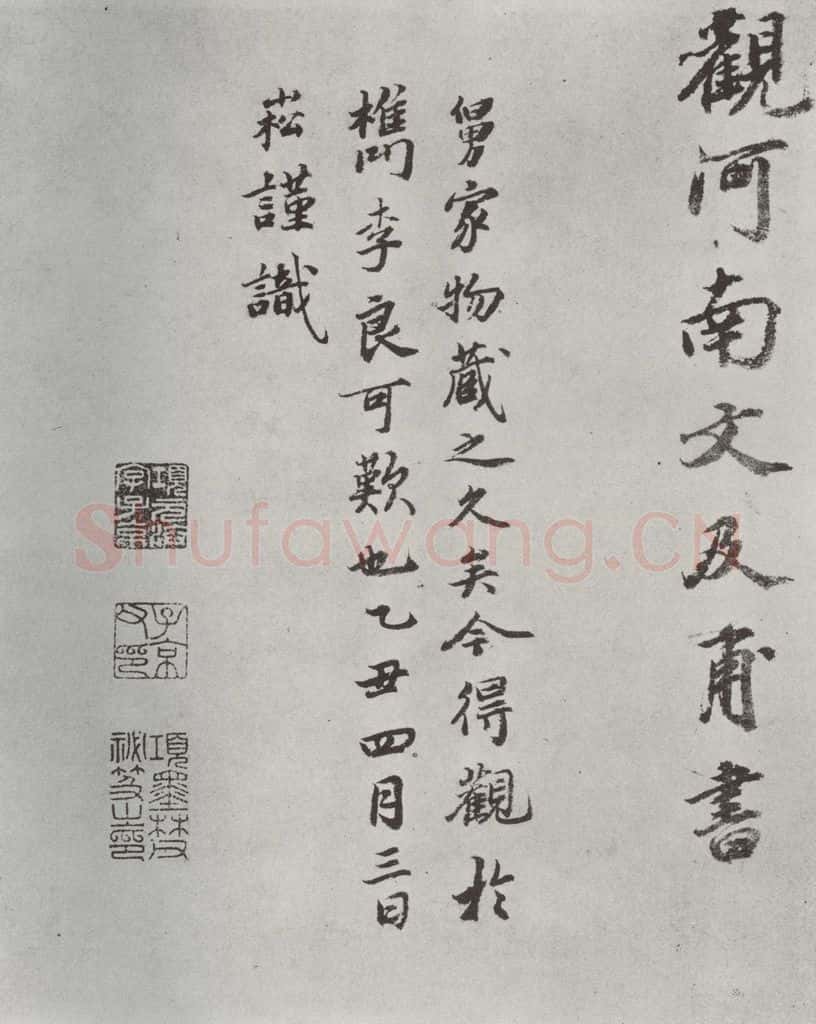 觀河南文及甫書
舅家物蔵之久矣今得觀於
檇李良可歎也乙丑四月三日
崧謹識
項元汴
字子京
子京
父印
項墨林
祕笈之印
Shufawang.CN